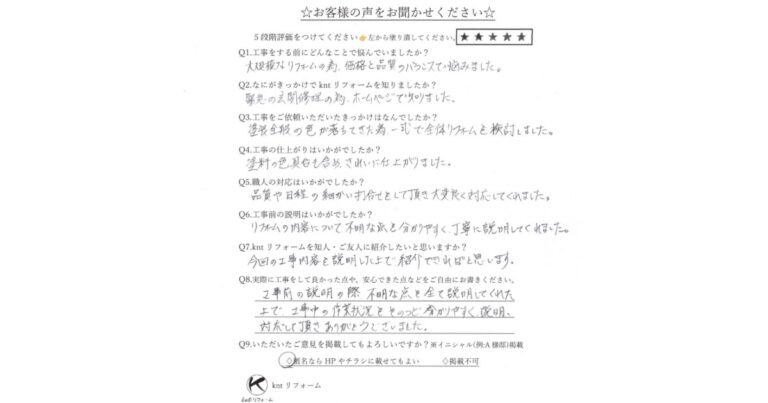 ☆お客様の声をお聞かせください☆
５段階評価をつけてください👉左から塗り潰してください。 ★★★★★
Q1.工事をする前にどんなことで悩んでいましたか？
大規模なリフォームの為、価格と品質のバランスで悩みました。
Q2.なにがきっかけで knt リフォームを知りましたか？
緊急の玄関修理の為、ホームページで知りました。
Q3.工事をご依頼いただいたきっかけはなんでしたか？
塗装全般の色が落ちてきた為、一式で全体リフォームを検討しました。
Q4.工事の仕上がりはいかがでしたか？
塗料の色具合も含め、きれいに仕上がりました。
Q5.職人の対応はいかがでしたか？
品質や日程の細かい打合せをして頂き大変良く対応してくれました。
Q6.工事前の説明はいかがでしたか？
リフォームの内容について不明な点を分かりやすく、丁寧に説明してくれました。
Q7.knt リフォームを知人・ご友人に紹介したいと思いますか？
今回の工事内容を説明した上で紹介できればと思います。
Q8.実際に工事をして良かった点や、安心できた点などをご自由にお書きください。
工事前の説明の際 不明な点を全て説明してくれた
上で、工事中の作業状況をそのつど分かりやすく説明、
対応して頂きありがとうございました。
Q9.いただいたご意見を掲載してもよろしいですか？※イニシャル(例:A 様邸)掲載
◇匿名なら HP やチラシに載せてもよい ◇掲載不可
K knt リフォーム
knt リフォーム